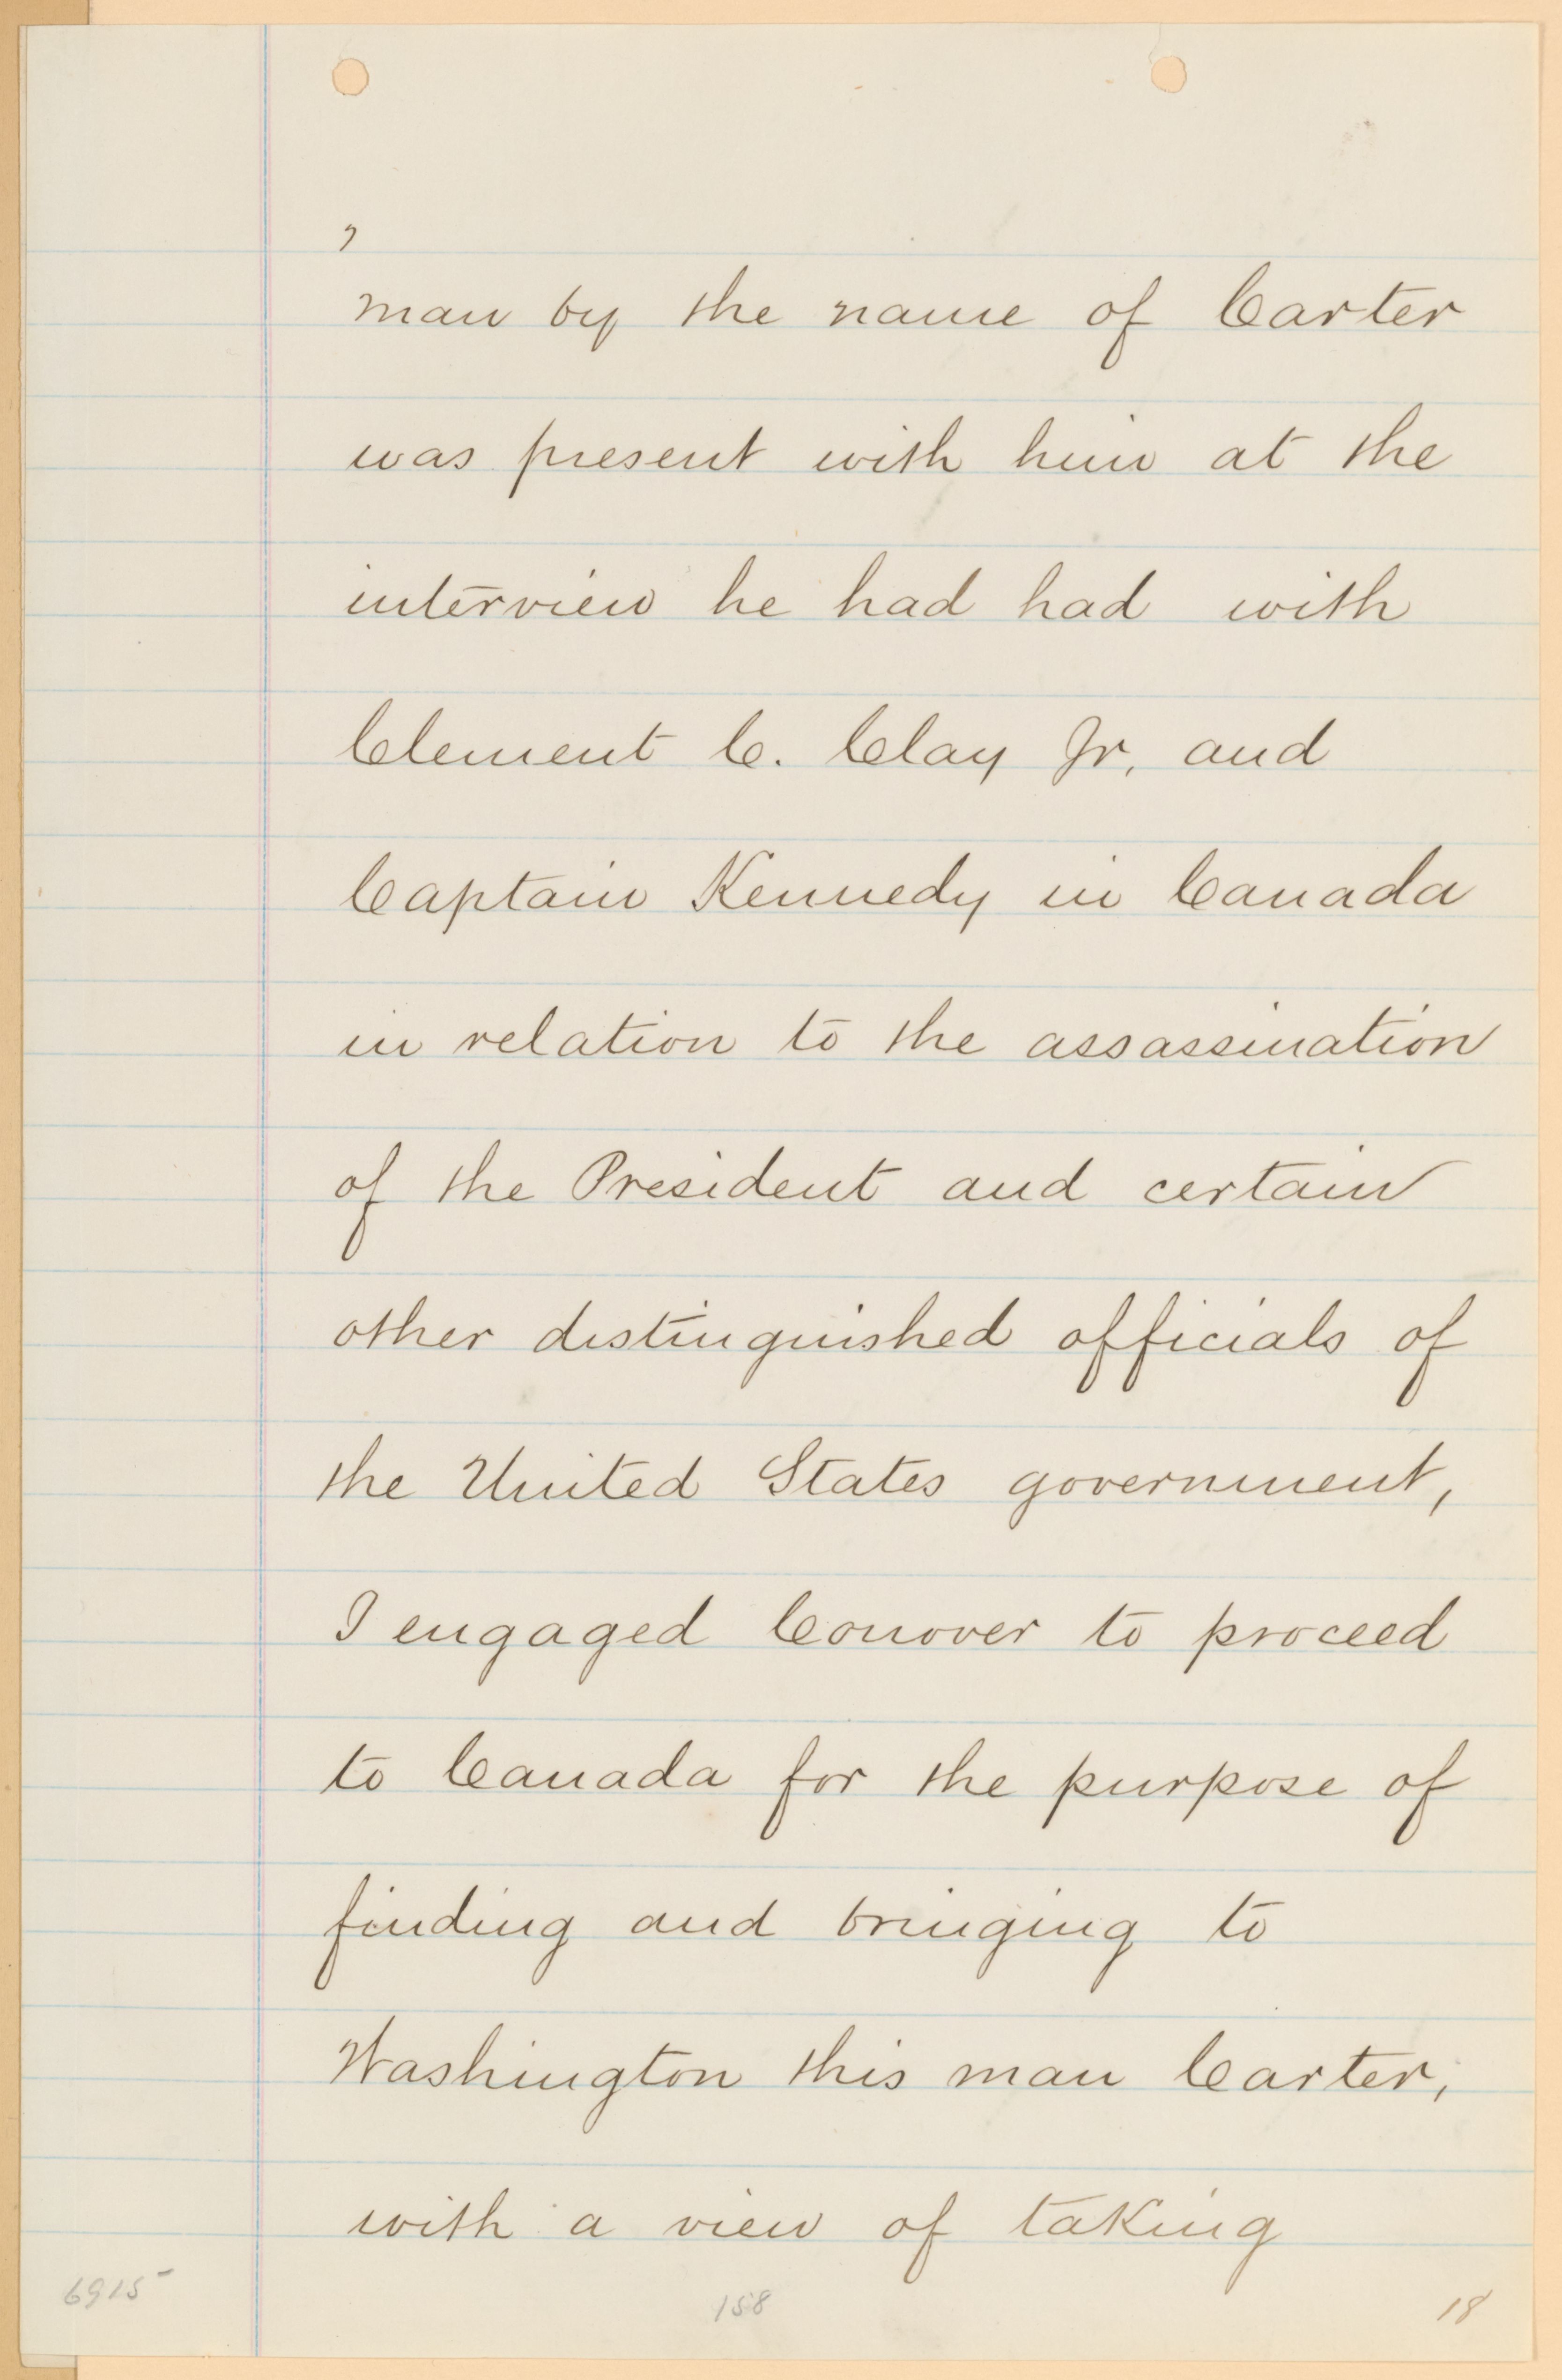 man by the name of Carter
was present with him at the
interview he had had with
Clement C. Clay Jr. and
Captain Kennedy in Canada
in relation to the assassination
of the President and certain
other distinguished officials of
the United States government,
I engaged Conover to proceed
to Canada for the purpose of
finding and bringing to
Washington this man Carter,
with a view of taking
6915 158 18